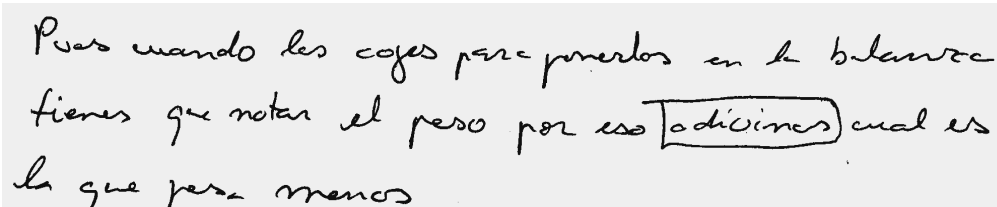 Pues cuando las coges para ponerlos en la balanza
tienes que notar el peso por eso adivinas cual es
la que pesa menos